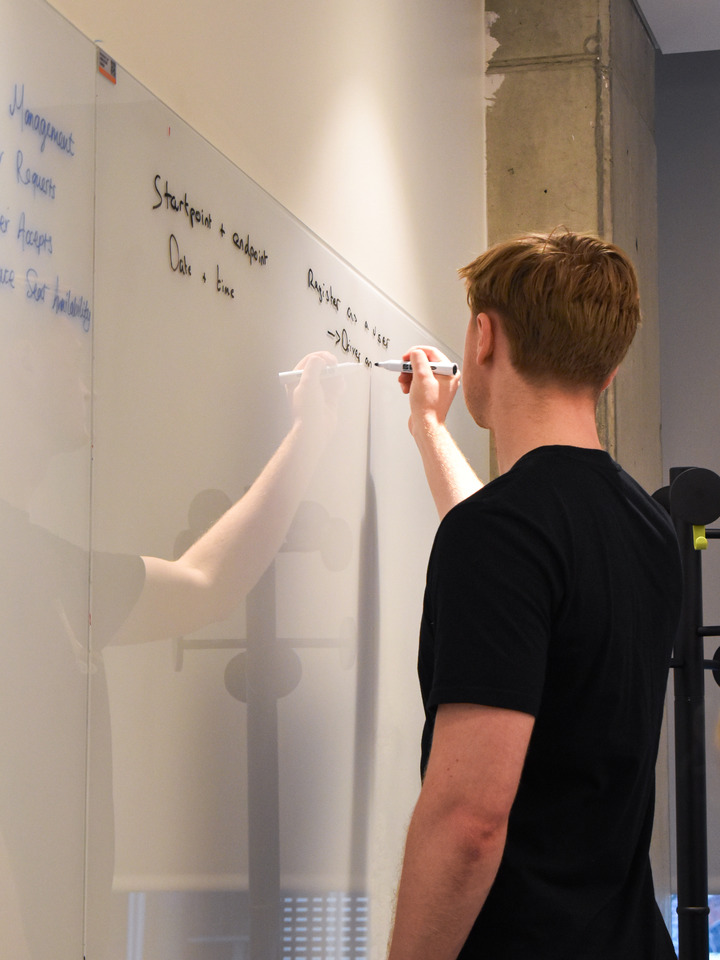 Management
Requests
Accepts
Seat Availability
Startpoint + endpoint
Date + time
Register as a user
->Driver or